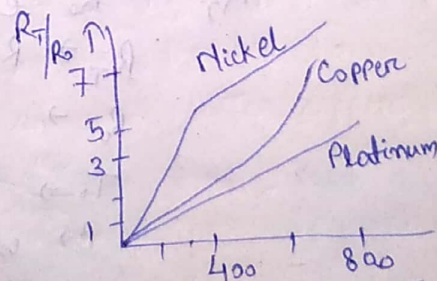 RT/R0
7
5
3
1
Nickel
Copper
Platinum
400
800